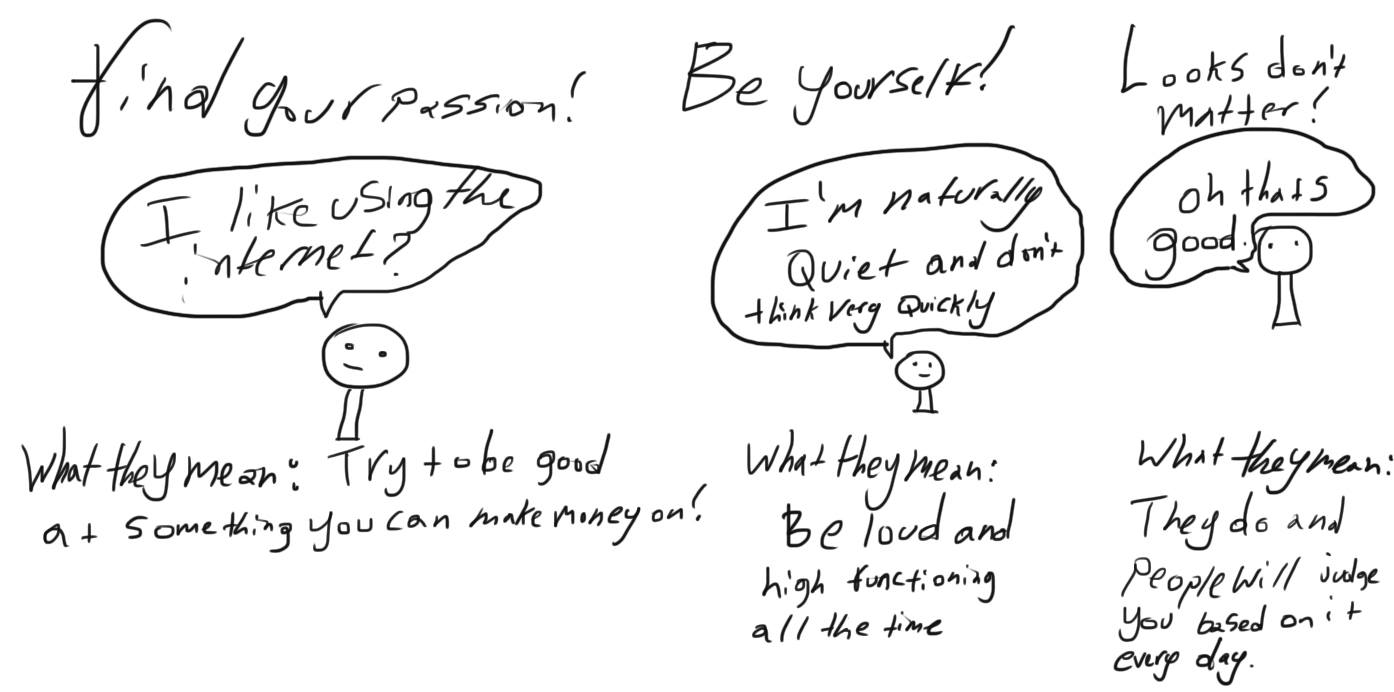 find your passion!
I like using the
internet?
What they mean: Try to be good
at something you can make money on!
Be yourself!
I'm naturally
Quiet and don't
think very Quickly
What they mean:
Be loud and
high functioning
all the time
Looks don't
matter!
oh thats
good.
What they mean:
They do and
People will judge
you based on it
every day.